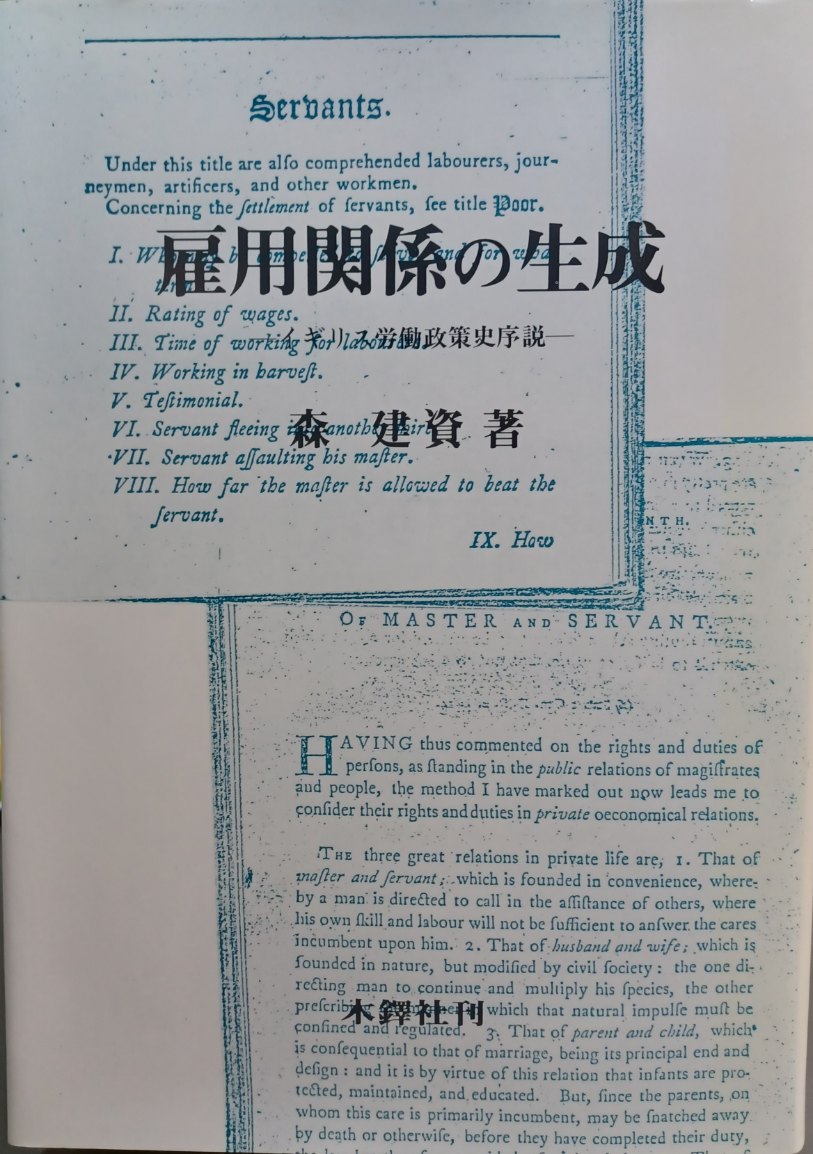 Servants.
Under this title are alſo comprehended labourers, jour-
neymen, artificers, and other workmen.
Concerning the ſettlement of ſervants, ſee title Poor.
雇用関係の生成
I. Who
II. Rating of wages.
―イギリス労働政策史序説―
III. Time of working for labourers.
IV. Working in harveſt.
V. Teſtimonial.
森 建資 著
VI. Servant fleeing into another
VII. Servant aſſaulting his maſter.
VIII. How far the maſter is allowed to beat the
ſervant.
IX. How
NTH.
OF MASTER AND SERVANT.
HAVING thus commented on the rights and duties of
perſons, as ſtanding in the public relations of magiſtrates
and people, the method I have marked out now leads me to
conſider their rights and duties in private oeconomical relations.
THE three great relations in private life are, 1. That of
maſter and ſervant; which is founded in convenience, where-
by a man is directed to call in the aſſiſtance of others, where
his own ſkill and labour will not be ſufficient to anſwer the cares
incumbent upon him. 2. That of huſband and wife; which is
founded in nature, but modified by civil ſociety: the one di-
recting man to continue and multiply his ſpecies, the other
木鐸社刊
which that natural impulſe muſt be
confined and regulated. 3. That of parent and child, which
is conſequential to that of marriage, being its principal end and
deſign: and it is by virtue of this relation that infants are pro-
tected, maintained, and educated. But, ſince the parents, on
whom this care is primarily incumbent, may be ſnatched away
by death or otherwiſe, before they have completed their duty,